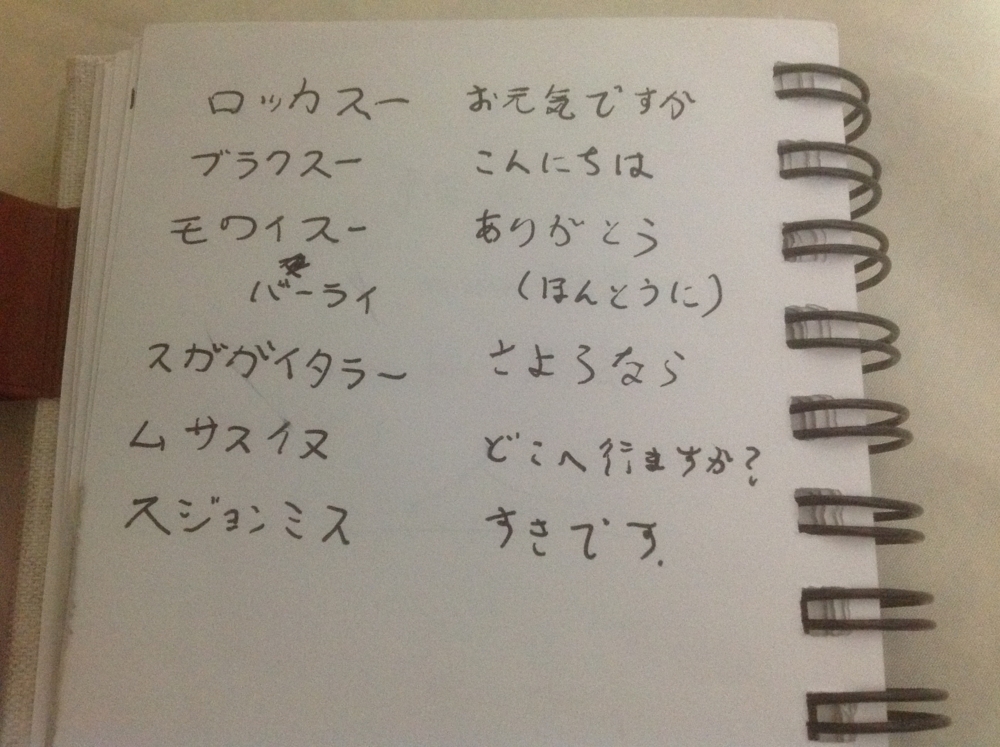 ロッカスー お元気ですか
ブラクスー こんにちは
モワイスー ありがとう
バーライ (ほんとうに)
スガガイタラー さよろなら
ムサスイヌ どこへ行ますか?
スジョンミス すきです.